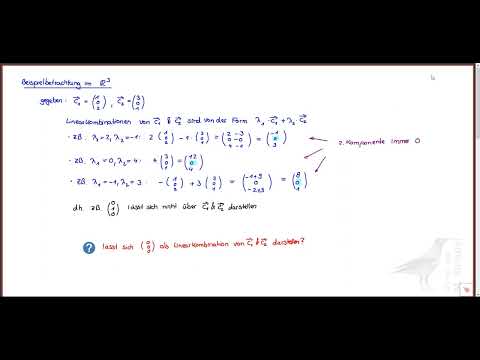 Beispielbetrachtung im ℝ³
gegeben: c⃗₁ = (1 0 2), c⃗₂ = (3 0 1)
Linearkombinationen von c⃗₁ & c⃗₂ sind von der Form λ₁·c⃗₁ + λ₂ c⃗₂
· z.B. λ₁=2, λ₂=-1: 2 (1 0 2) - 1·(3 0 1) = (2-3 0-0 4-1) = (-1 0 3)
2. Komponente immer 0
· z.B. λ₁=0, λ₂=4: 4 (3 0 1) = (12 0 4)
· z.B. λ₁=-1, λ₂=3: -(1 0 2) + 3 (3 0 1) = (-1+9 0 -2+3) = (8 0 1)
d.h. z.B. (0 1 0) lässt sich nicht über c⃗₁ & c⃗₂ darstellen
? lässt sich (0 0 0) als Linearkombination von c⃗₁ & c⃗₂ darstellen?